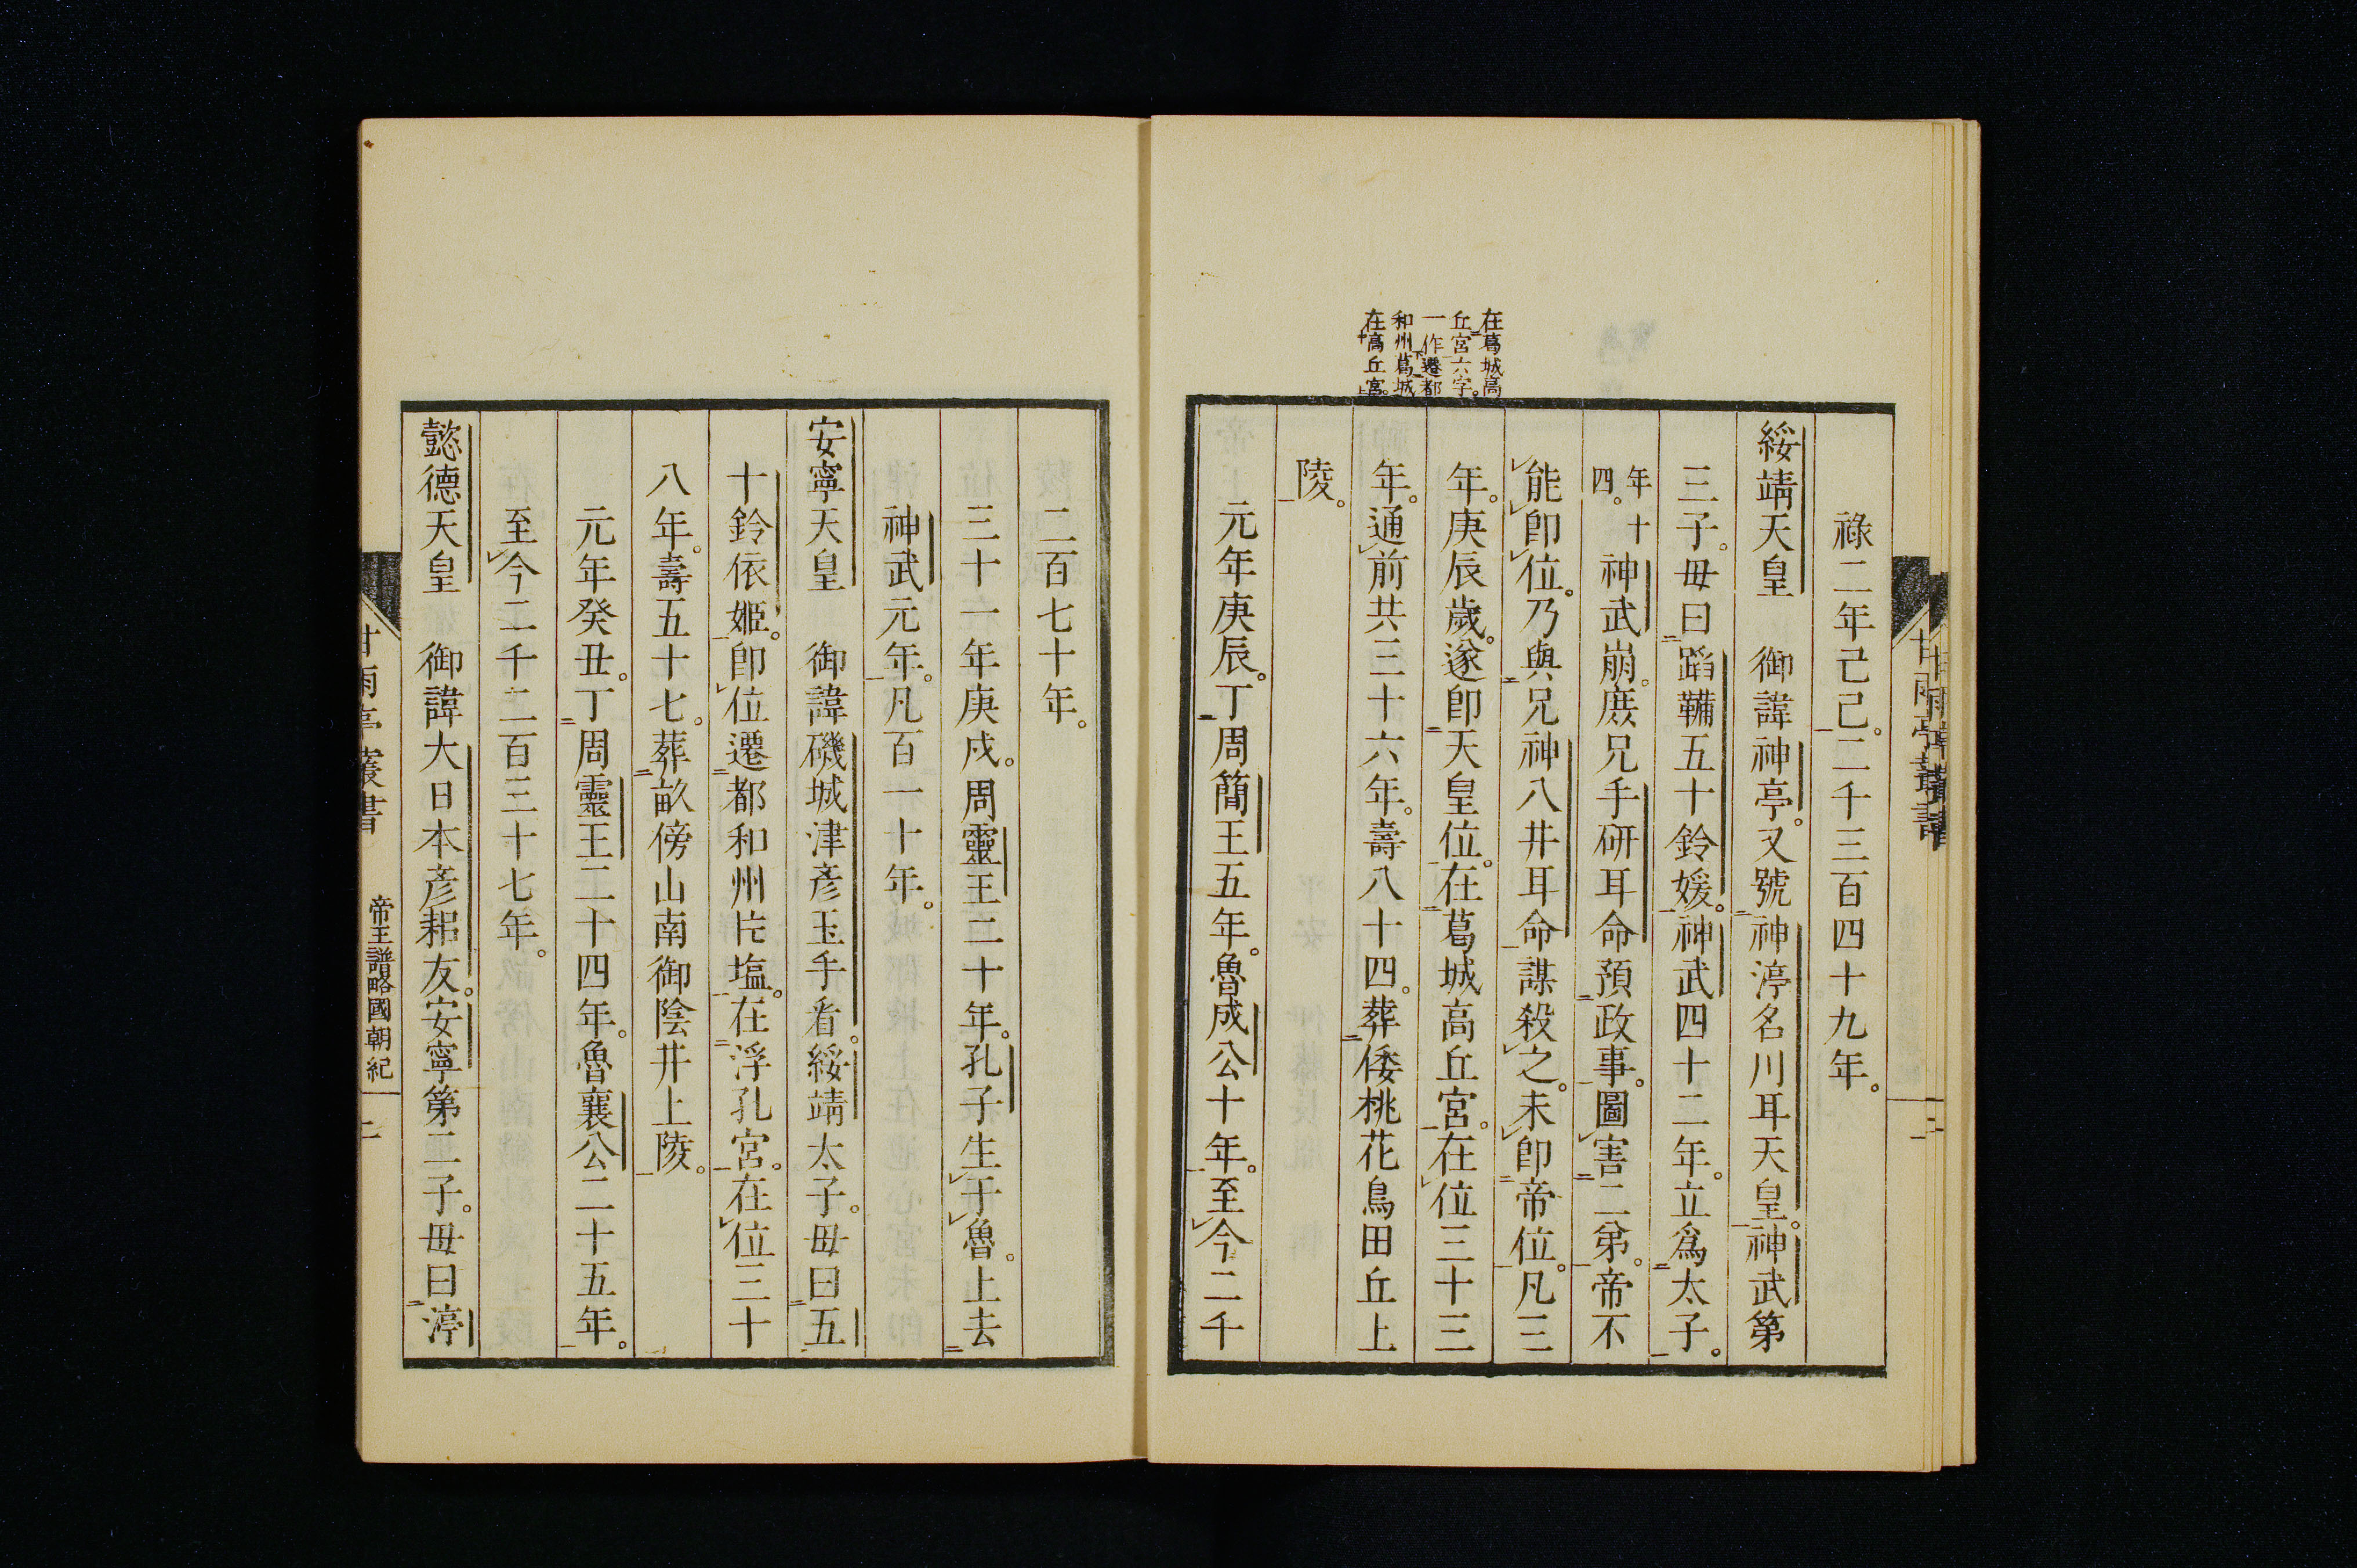 在葛城高
丘宮六字。
一作遷都
和州葛城
在高丘宮。
祿二年己巳。二千三百四十九年。
綏靖天皇　御諱神亭。又號神渟名川耳天皇。神武第
三子。毋曰蹈鞴五十鈴媛。神武四十二年。立爲太子。
年十
四。
神武崩。庶兄手研耳命預政事。圖害二弟。帝不
能卽位。乃與兄神八井耳命謀殺之。未卽帝位。凡三
年。庚辰歲。遂卽天皇位。在葛城高丘宮。在位三十三
年。通前共三十六年。壽八十四。葬倭桃花鳥田丘上
陵。
元年庚辰。丁周簡王五年。魯成公十年。至今二千
二百七十年。
三十一年庚戌。周靈王二十年。孔子生于魯。上去
神武元年。凡百一十年。
安寧天皇　御諱磯城津彥玉手看。綏靖太子。毋曰五
十鈴依姬。卽位遷都和州片塩。在浮孔宮。在位三十
八年。壽五十七。葬畝傍山南御陰井上陵。
元年癸丑。丁周靈王二十四年。魯襄公二十五年。
至今二千二百三十七年。
懿德天皇　御諱大日本彥耜友。安寧第二子。毋曰渟
甘雨亭叢書
帝王譜略國朝紀
二